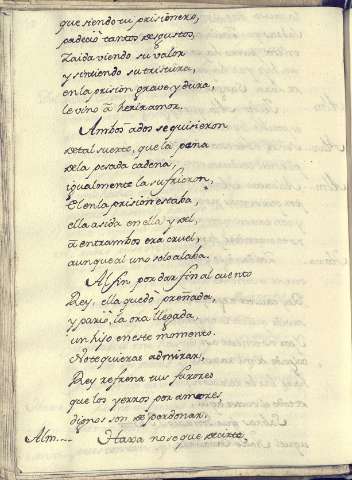 que siendo tu prisionero,
padeció tantos desgustos,
Zaida viendo su valor
y sintiendo su tristura,
en la prisión grave y dura,
le vino à herir amor.
Ambos ados se quisieron
de tal suerte, que la pena
de la pesada cadena,
igualmente la sufrieron,
El en la prisión estaba,
ella asida en ella y del,
à entrambos era cruel,
aunque al uno solo ataba.
Al fin por dar fin al cuento
Rey, ella quedò preñada,
y pariò, la ora llegada,
un hijo en este momento.
No te quieras admirar,
Rey refrena tus furores
que los yerros por amores
dignos son de perdonar.
Alm.... Haxa no se que decirte